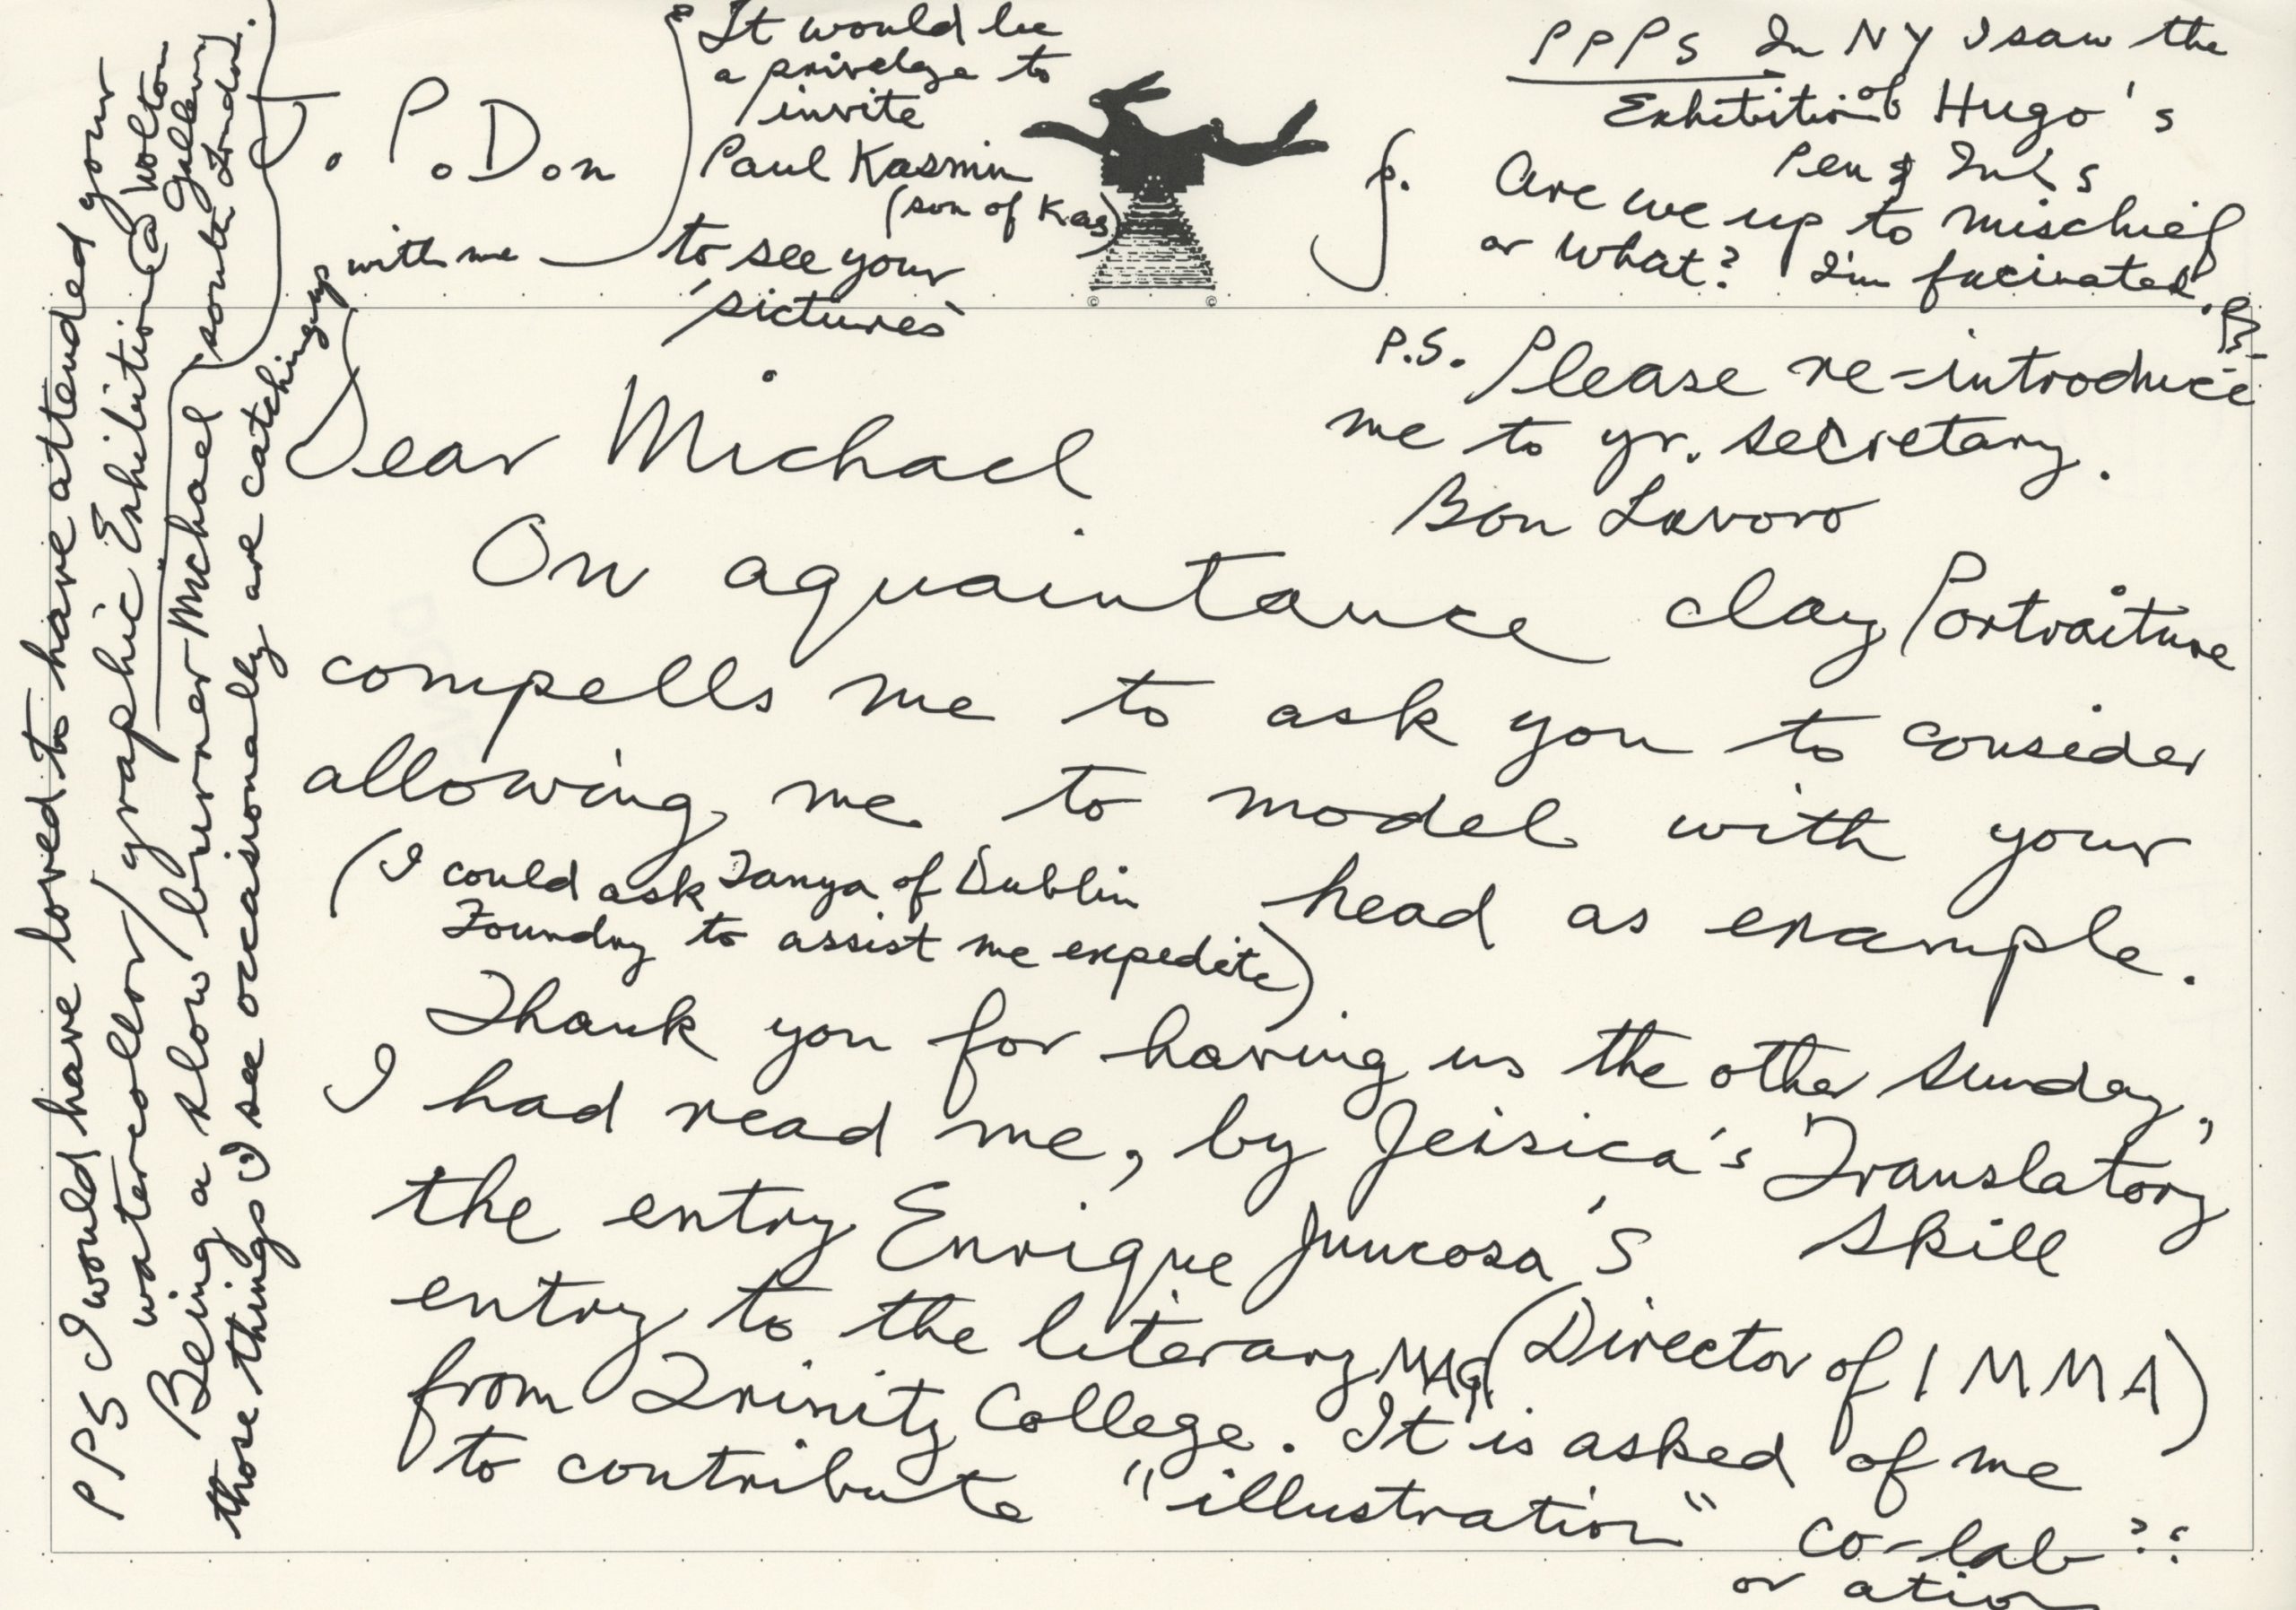 It would be
a privelege to
invite
Paul Kasmin
(son of Kas)
to see your
'pictures'
with me
J. P. Don
PPPS In NY I saw the
Exhibition of Hugo's
Pen & Inks
Are we up to mischief
or what? I'm facinated.
P.S. Please re-introduce
me to yr. secretary.
Bon Lavoro
Dear Michael
On aquaintance clay Portraiture
compells me to ask you to consider
allowing me to model with your
head as example.
(I could ask Tanya of Dublin
Foundry to assist me expedite)
Thank you for having us the other Sunday,
I had read me, by Jeisica's Translatory
skill
the entry Enrique Juncosa's
entry to the literary MAG (Director of IMMA)
from Trinity College. It is asked of me
to contribute "illustration" co-lab??
or ation
PPS I would have loved to have attended your
watercollor/graphic Exhibition @ Wolton
Gallery
South London.
Being a slow burner Michael
those things I see occasionally are catching up
© ©